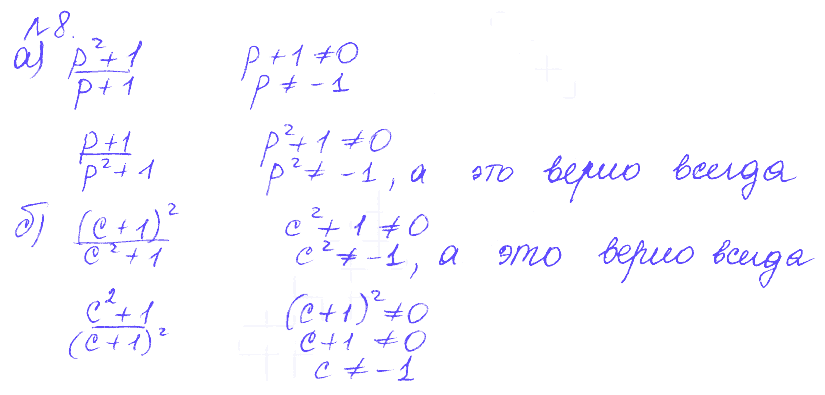 №8.
а) (p²+1)/(p+1) p+1≠0
p≠-1
(p+1)/(p²+1) p²+1≠0
p²≠-1, а это верно всегда
б) (c+1)²/(c²+1) c²+1≠0
c²≠-1, а это верно всегда
(c²+1)/(c+1)² (c+1)²≠0
c+1≠0
c≠-1